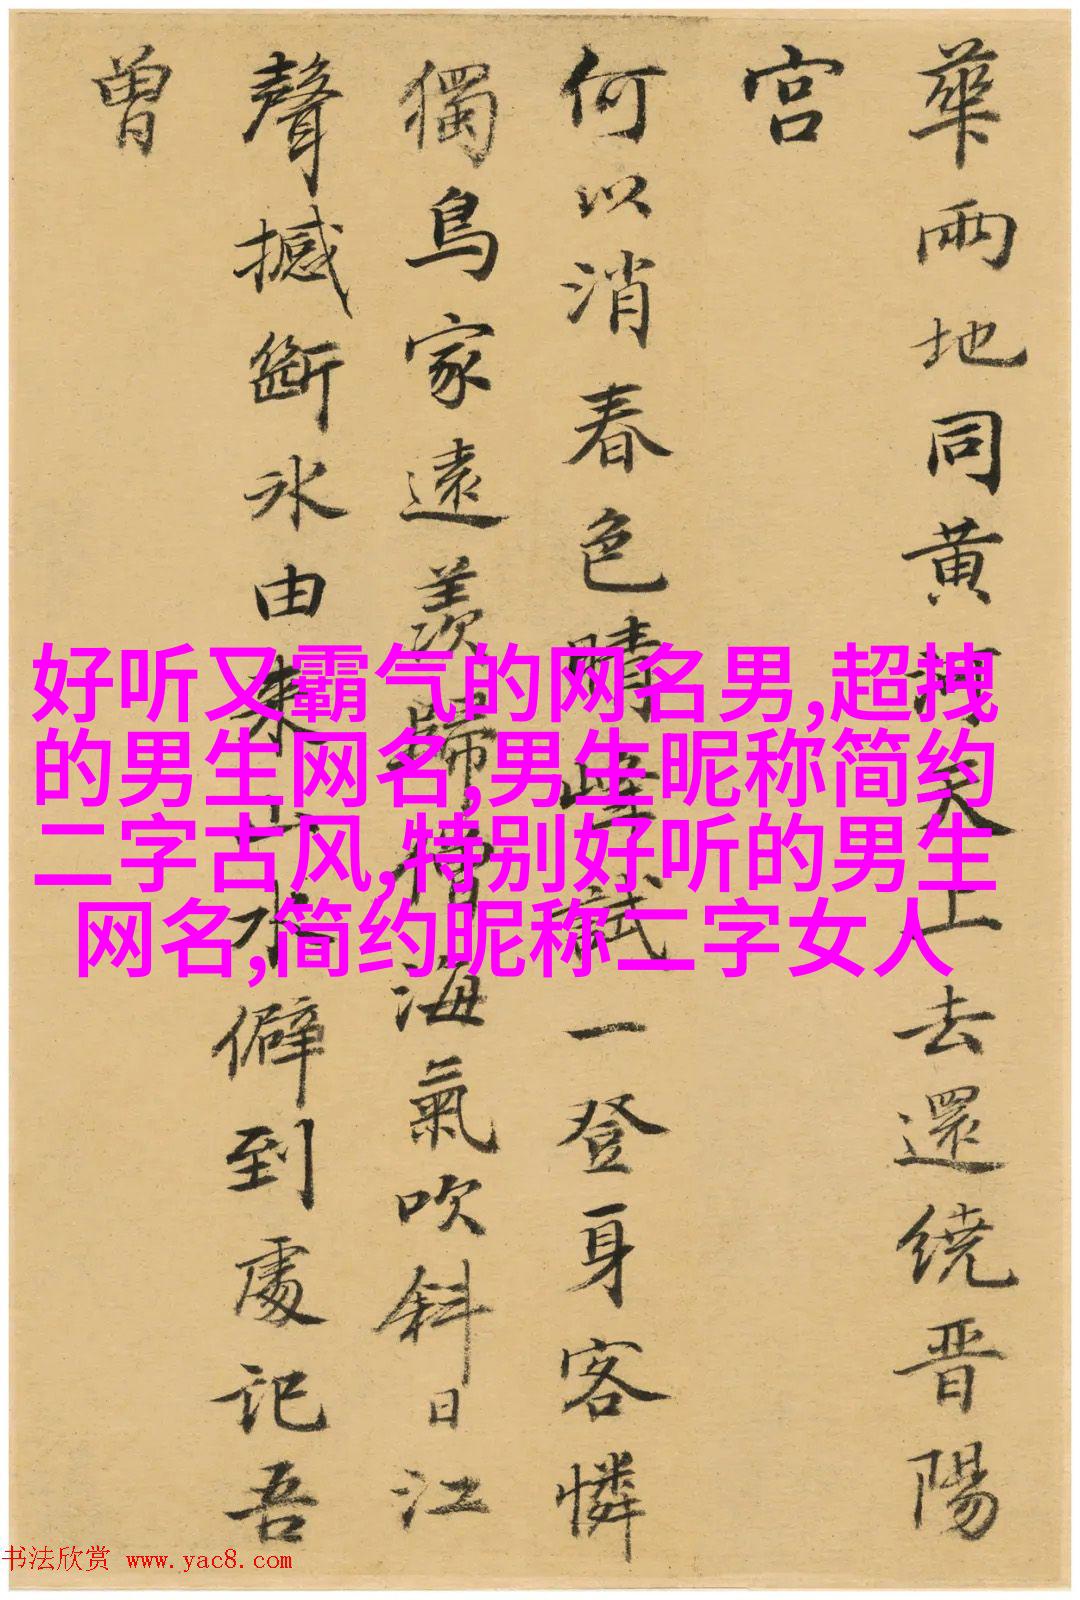 華兩地同黃河天上去還繞晉陽
宮
何以消春色晴峰試一登身客憐
獨鳥家遠羨歸僧海氣吹斜日江
聲撼斷氷由來山水僻到處記吾
曾
好听又霸气的网名男,超拽
的男生网名,男生昵称简约
二字古风,特别好听的男生
网名,简约昵称二字女人
书法欣赏 www.yac8.com